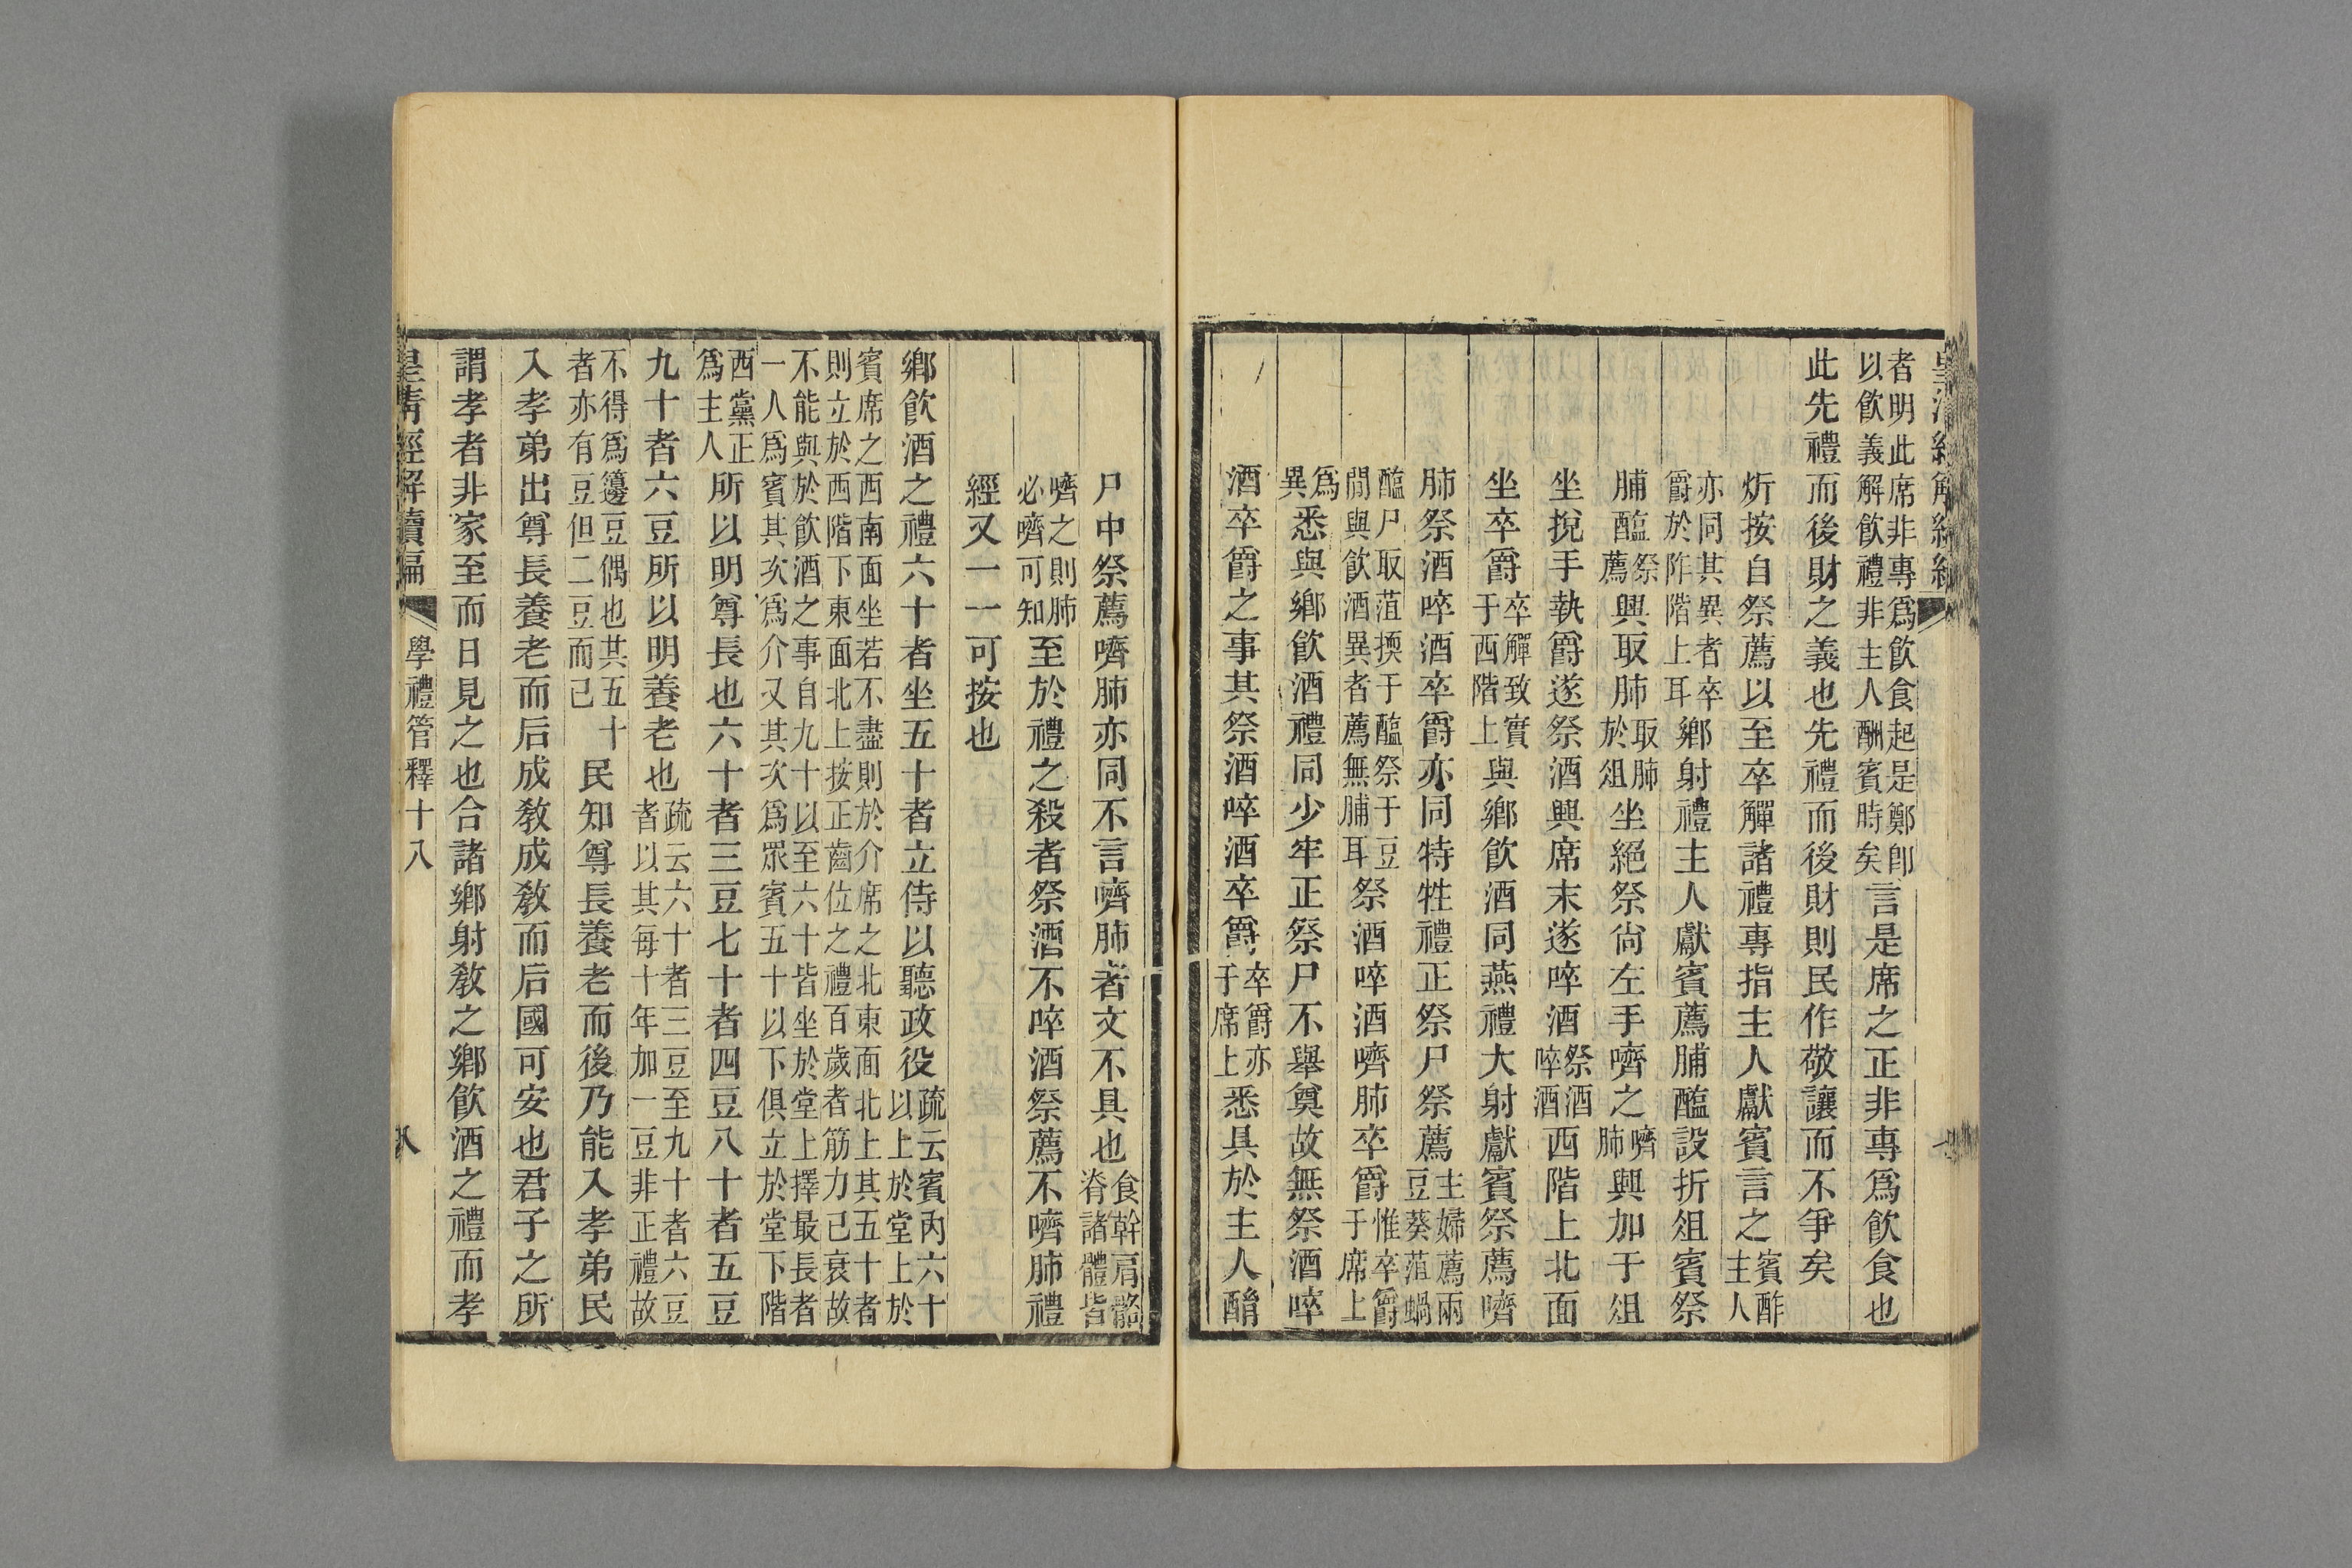 皇清經解續編
者明此席非專爲飮食起是鄭卽以飮義解飮禮非主人酬賓時矣言是席之正非專爲飮食也
此先禮而後財之義也先禮而後財則民作敬讓而不爭矣
炘按自祭薦以至卒觶諸禮專指主人獻賓言之賓酢主人
亦同其異者卒爵於阼階上耳鄉射禮主人獻賓薦脯醢設折俎賓祭
脯醢祭薦興取肺取肺於俎坐絕祭尙左手嚌之嚌肺興加于俎
坐挩手執爵遂祭酒興席末遂啐酒祭酒啐酒西階上北面
坐卒爵卒觶致實于西階上與鄉飮酒同燕禮大射獻賓祭薦嚌
肺祭酒啐酒卒爵亦同特牲禮正祭尸祭薦主婦薦兩豆葵菹蝸
醢尸取菹擩于醢祭于豆間與飮酒異者薦無脯耳祭酒啐酒嚌肺卒爵惟卒爵于席上
爲異悉與鄉飮酒禮同少牢正祭尸不舉奠故無祭酒啐
酒卒爵之事其祭酒啐酒卒爵卒爵亦于席上悉具於主人酳
尸中祭薦嚌肺亦同不言嚌肺者文不具也食幹肩骼脊諸體皆
嚌之則肺必嚌可知至於禮之殺者祭酒不啐酒祭薦不嚌肺禮
經又一一可按也
鄉飮酒之禮六十者坐五十者立侍以聽政役疏云賓內六十以上於堂上於
賓席之西南面坐若不盡則於介席之北東面北上其五十者則立於西階下東面北上按正齒位之禮百歲者筋力已衰故
不能與於飮酒之事自九十以至六十皆坐於堂上擇最長者一人爲賓其次爲介又其次爲眾賓五十以下俱立於堂下階
西黨正爲主人所以明尊長也六十者三豆七十者四豆八十者五豆
九十者六豆所以明養老也疏云六十者三豆至九十者六豆者以其每十年加一豆非正禮故
不得爲籩豆偶也其五十者亦有豆但二豆而已民知尊長養老而後乃能入孝弟民
入孝弟出尊長養老而后成敎成敎而后國可安也君子之所
謂孝者非家至而日見之也合諸鄉射敎之鄉飮酒之禮而孝
皇清經解續編 學禮管釋十八 八